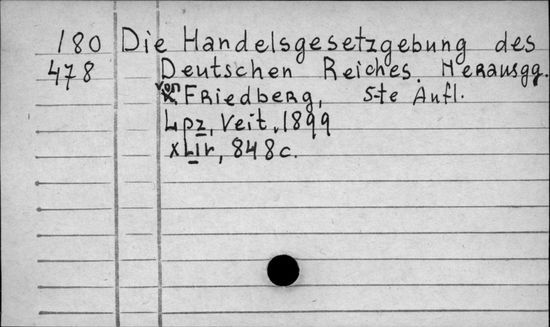 180 Die Handelsgesetzgebung des
478 Deutschen Reiches. Herausgg.
von Friedberg, 5-te Aufl.
Lpz, Veit, 1899
XLIV, 848c.